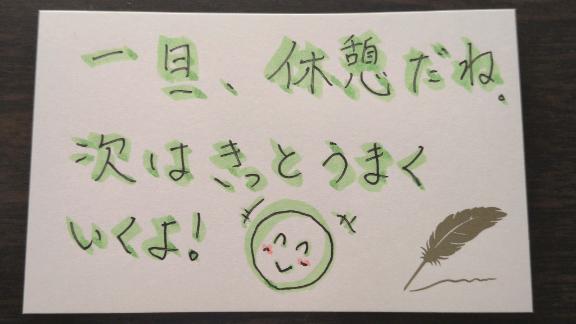 一旦、休憩だね。
次はきっとうまく
いくよ!